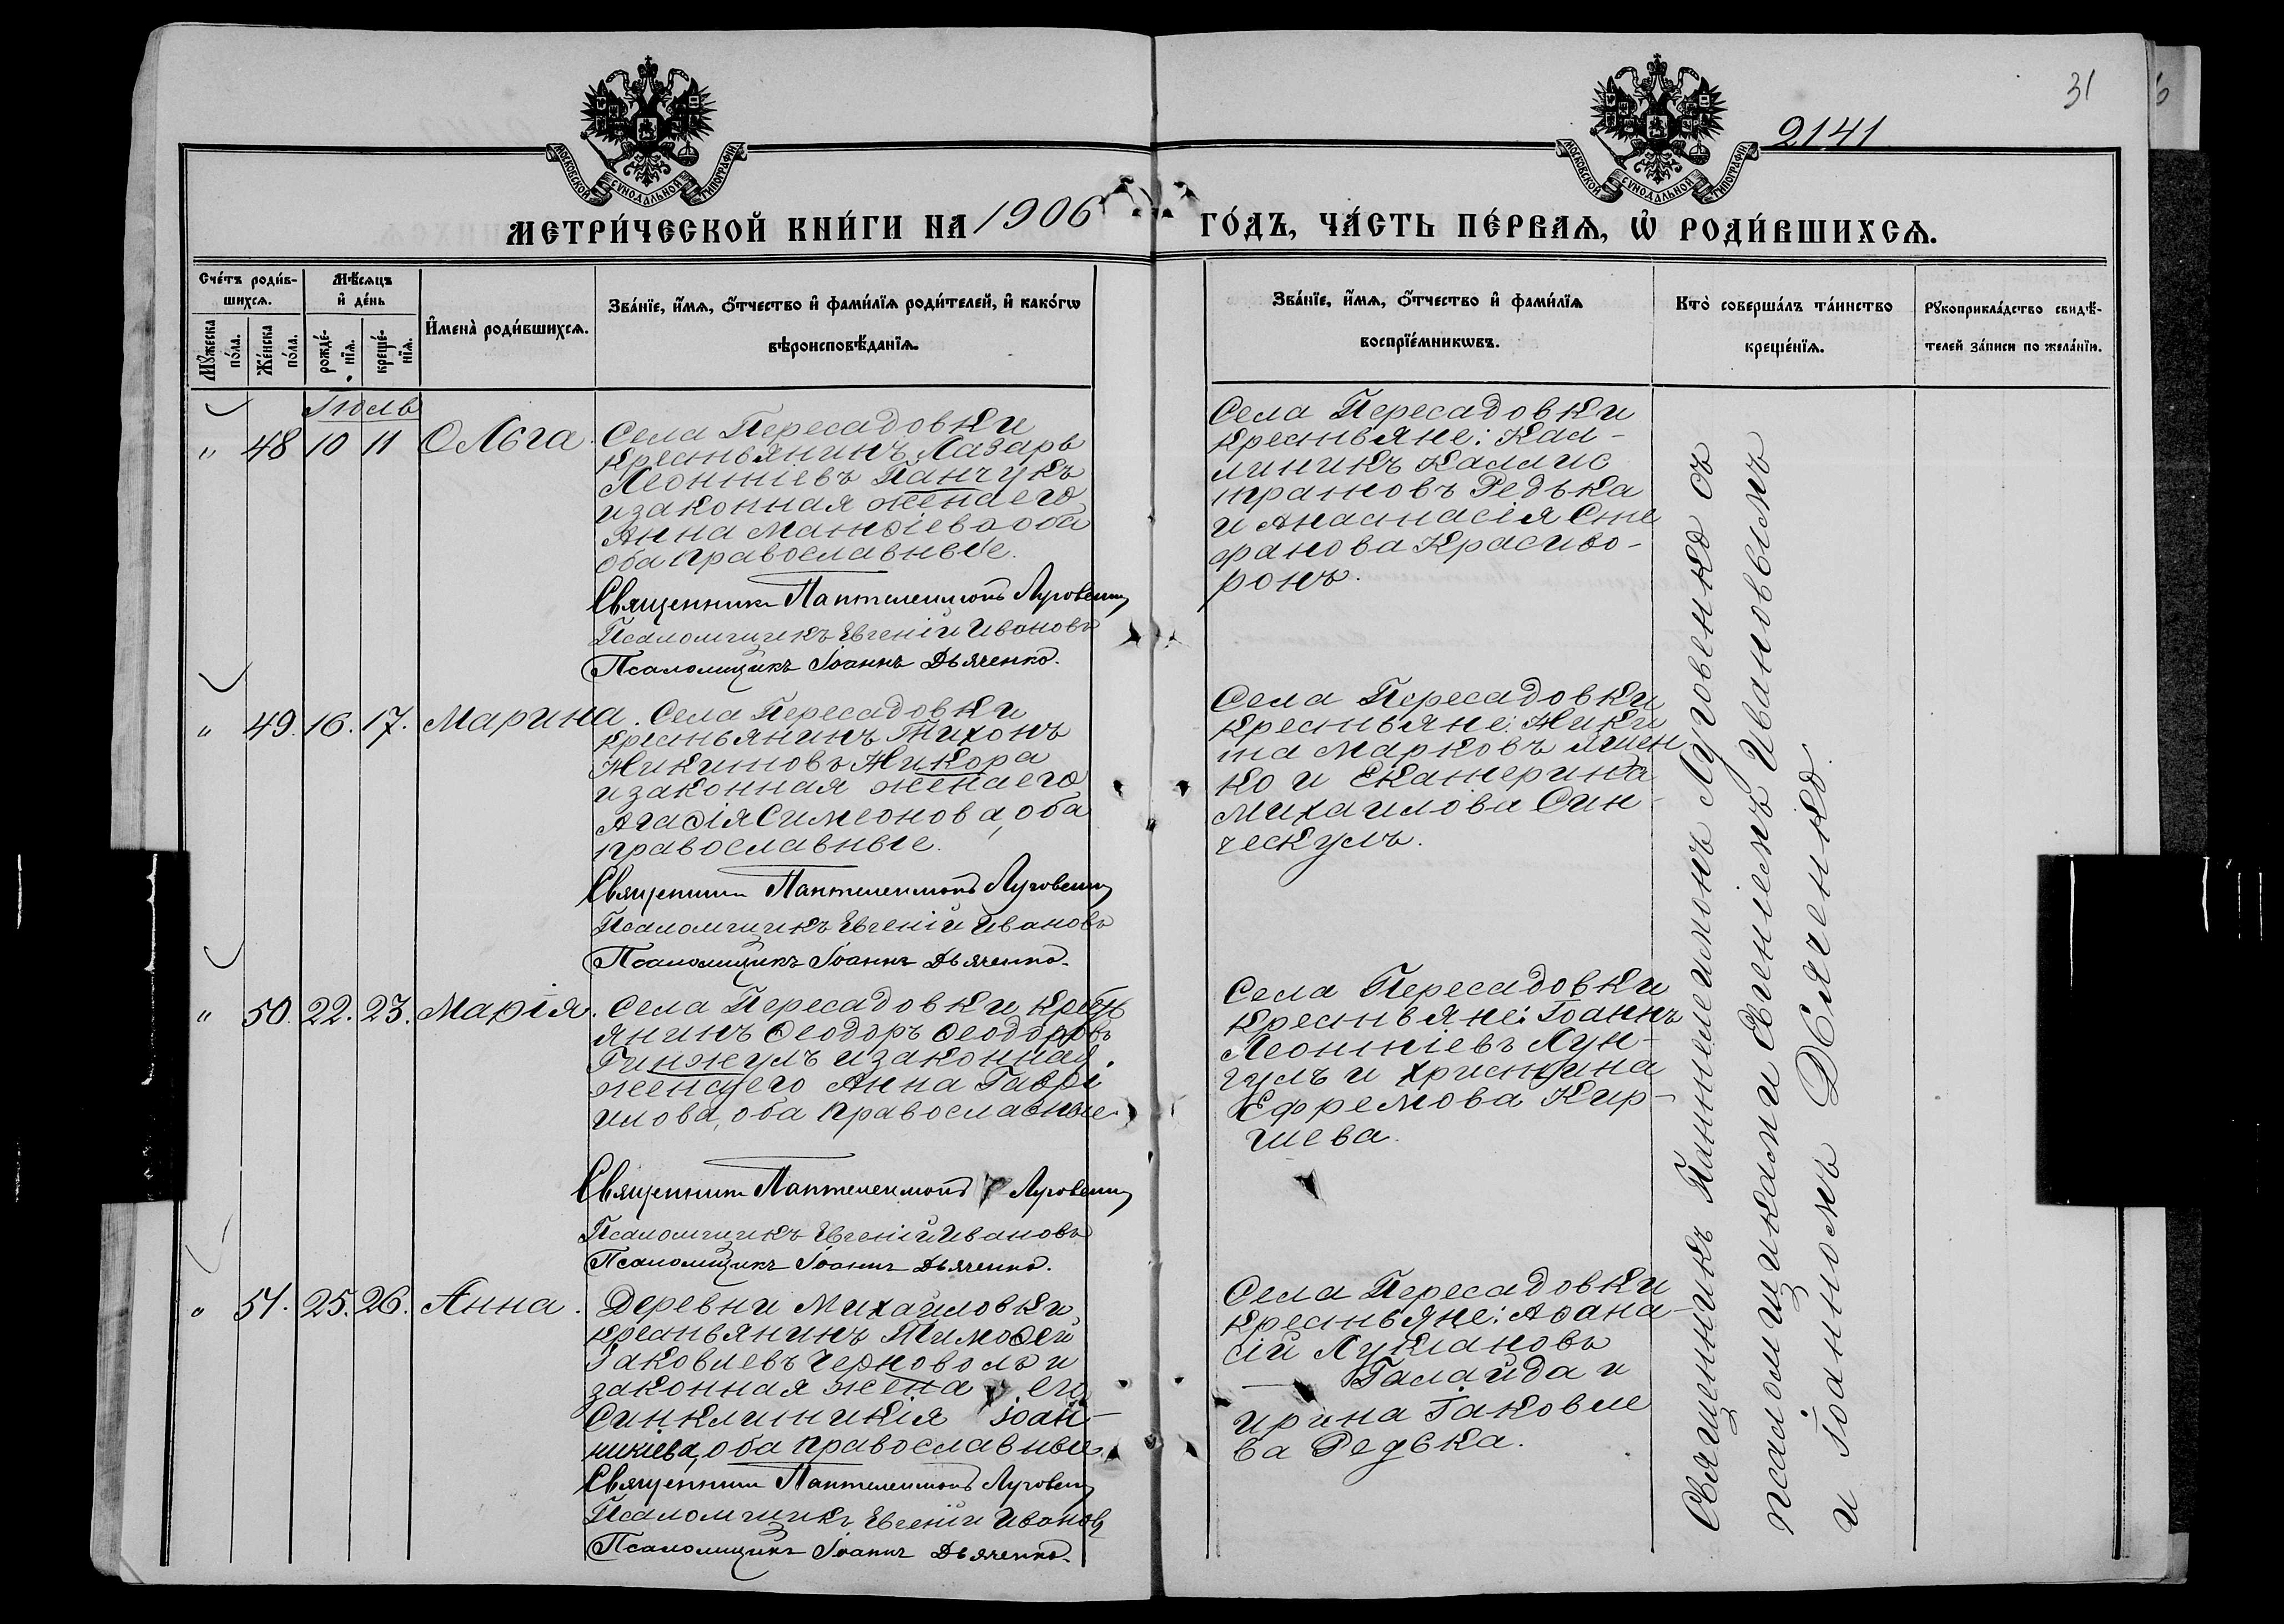 31
2141
МОСКОВСКОЙ СУНОДАЛЬНОЙ ТИПОГРАФИИ
МОСКОВСКОЙ СУНОДАЛЬНОЙ ТИПОГРАФИИ
МЕТРИ́ЧЕСКОЙ КНИ́ГИ НА 1906 ГО́ДЪ, ЧА́СТЬ ПЕ́РВАѦ, Ѡ҆ РОДИ́ВШИХСѦ.
Сче́тъ роди́в-
шихсѧ.
Мꙋ́жеска по́ла.
Же́нска по́ла.
Мѣ́сѧцъ
и҆ де́нь
рожде́-
нїѧ.
креще́-
нїѧ.
И҆мена̀ роди́вшихсѧ.
Зва́нїе, и҆́мѧ, ѻ҆́тчество и҆ фами́лїѧ роди́телей, и҆ како́гѡ
вѣроисповѣ́данїѧ.
Зва́нїе, и҆́мѧ, ѻ҆́тчество и҆ фами́лїѧ
воспрїе́мникѡвъ.
Кто̀ соверша́лъ та́инство
креще́нїѧ.
Рꙋкоприкла́дство свидѣ́-
телей за́писи по жела́нїю.
Іюль
" 48 10 11 Ольга.
Села Пересадовки
крестьянинъ Лазарь
Леонтіевъ Панчукъ
и законная жена его
Анна Матѳіева оба
оба православные.
Священникъ Пантелеимонъ Луговенко
Псаломщикъ Евгеній Ивановъ
Псаломщикъ Іоаннъ Дьяченко.
Села Пересадовки
крестьяне: Кал-
линикъ Каллис
тратовъ Редька
и Анастасія Сте
фанова Красиво-
ронъ.
" 49. 16. 17. Марина.
Села Пересадовки
крестьянинъ Тихонъ
Никитовъ Никора
и законная жена его
Агафія Симеонова, оба
православные.
Священникъ Пантелеимонъ Луговенко
Псаломщикъ Евгеній Ивановъ
Псаломщикъ Іоаннъ Дьяченко.
Села Пересадовки
крестьяне: Ники
та Марковъ Ящен
ко и Екатерина
Михаилова Син-
ческулъ.
" 50. 22. 23. Марія.
Села Пересадовки крест
янинъ Ѳеодоръ Ѳеодоровъ
Гинжулъ и законная
жена его Анна Гаврі
илова, оба православные.
Священникъ Пантелеимонъ Луговенко
Псаломщикъ Евгеній Ивановъ
Псаломщикъ Іоаннъ Дьяченко.
Села Пересадовки
крестьяне: Іоаннъ
Леонтіевъ Лун-
гулъ и Христина
Ефремова Кир-
шева.
" 51. 25. 26. Анна.
Деревни Михайловки
крестьянинъ Тимоѳей
Іаковлевъ Черноволъ и
законная жена его
Синклитикія Іоан-
никіева, оба православные.
Священникъ Пантелеимонъ Луговенко
Псаломщикъ Евгеній Ивановъ
Псаломщикъ Іоаннъ Дьяченко.
Села Пересадовки
крестьяне: Аѳана-
сій Лукіановъ
Галайда и
Ирина Іаковле
ва Редька.
Священникъ Пантелеимонъ Луговенко съ
псаломщиками Евгеніемъ Ивановымъ
и Іоанномъ Дьяченко.